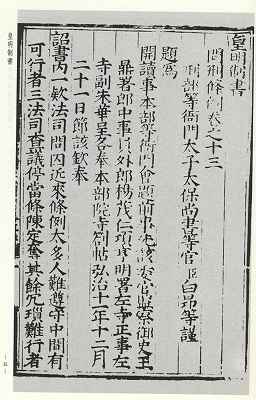 皇明制書
皇明制書
問刑條例卷之十三
刑部等衙門太子太保尚書等官臣白昂等謹
題爲
開讀事本部等衙門會題前事先該委官監察御史王
鼎署郎中事員外郎楊茂仁項明署左寺正事左
寺副朱華呈各奉本部院寺劄帖弘治十一年十二月
二十一日節該欽奉
詔書內一款法司問囚近來條例太多人難遵守中間有
可行者三法司查議停當條陳定奪其餘冗瑣難行者